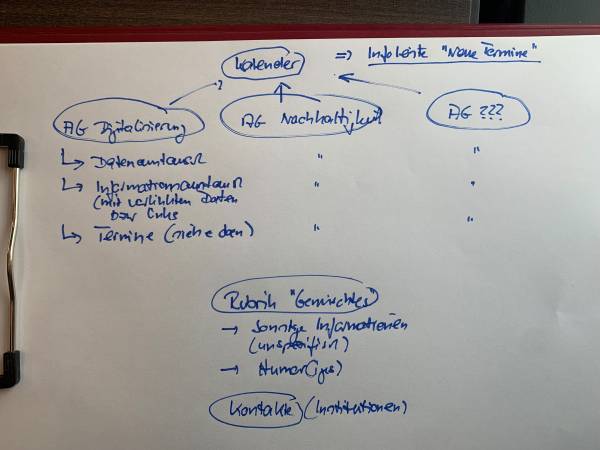 Kalender => Infoleiste "Neue Termine"
AG Digitalisierung AG Nachhaltigkeit AG ???
↳ Datenaustausch " "
↳ Informationsaustausch " "
(mit verlinkten Daten
bzw Links
↳ Termine (siehe oben) " "
Rubrik "Gemischtes"
→ Sonstige Informationen
(unspezifisch)
→ Humor
Kontakte (Institutionen)